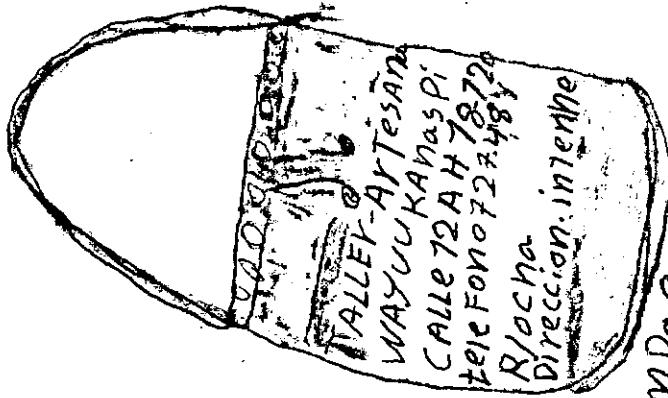 TALLER-ArTesANa
WAYUUKANasPi
CALLe 12AH 7872a
teleFono727484
R/ocha
Direccion:intenhe